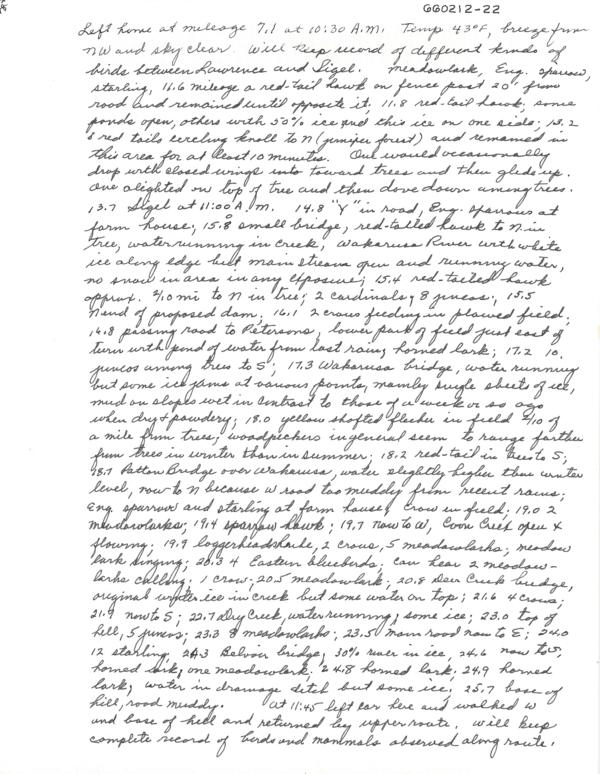 GG0212-22
Left home at mileage 7.1 at 10:30 A.M. Temp 43°F, breeze from
NW and sky clear. Will keep record of different kinds of
birds between Lawrence and Sigel. Meadowlark, Eng. sparrow,
starling, 11.6 mileage a red-tail hawk on fence post 20' from
road and remained until opposite it; 11.8 red-tail hawk; some
ponds open, others with 50% ice and this ice on one side; 13.2
red tails circling knoll to N (juniper forest) and remained in
this area for at least 10 minutes. One would occasionally
drop with closed wings into toward trees and then glide up.
One alighted on top of tree and then dove down among trees.
13.7 Sigel at 11:00 A.M. 14.8 "Y" in road, Eng. sparrows at
farm house; 15.0 small bridge, red-tailed hawk to N in
tree, water running in creek, Wakarusa River with white
ice along edge but main stream open and running water,
no snow in area in any exposure; 15.4 red-tailed hawk
approx. 2/10 mi to N in tree; 2 cardinals, 8 juncos; 15.5
N end of proposed dam; 16.1 2 crows feeding in plowed field;
16.8 passing road to Petersons, lower part of field just east of
turn with pond of water from last rain, horned lark; 17.2 10
juncos among trees to S; 17.3 Wakarusa bridge, water running
but some ice jams at various points, mainly single sheets of ice,
mud on slopes wet in contrast to those of a week or so ago
when dry & powdery; 18.0 yellow shafted flicker in field 2/10 of
a mile from trees; woodpeckers in general seem to range farther
from trees in winter than in summer; 18.2 red-tail in tree to S;
18.7 Patton Bridge over Wakarusa, water slightly higher than winter
level, now to N because W road too muddy from recent rains;
Eng sparrow and starling at farm house, crow in field; 19.0 2
meadowlarks; 19.4 sparrow hawk; 19.7 now to W, Coon Creek open &
flowing; 19.9 loggerhead shrike, 2 crows, 5 meadowlarks; meadow
lark singing; 20.3 4 Eastern bluebirds; can hear 2 meadow-
larks calling; 1 crow; 20.5 meadowlark; 20.8 Deer Creek bridge,
original winter ice in creek but some water on top; 21.6 4 crows;
21.9 now to S; 22.7 Dry Creek, water running, some ice; 23.0 top of
hill, 5 juncos; 23.3 8 meadowlarks; 23.5 main road now to E; 24.0
12 starling, 24.3 Belvoir bridge, 30% river in ice, 24.6 now to S,
horned lark, one meadowlark; 24.8 horned lark; 24.9 horned
lark, water in drainage ditch but some ice; 25.7 base of
hill, road muddy. At 11:45 left car here and walked W
and base of hill and returned by upper route. Will keep
complete record of birds and mammals observed along route.